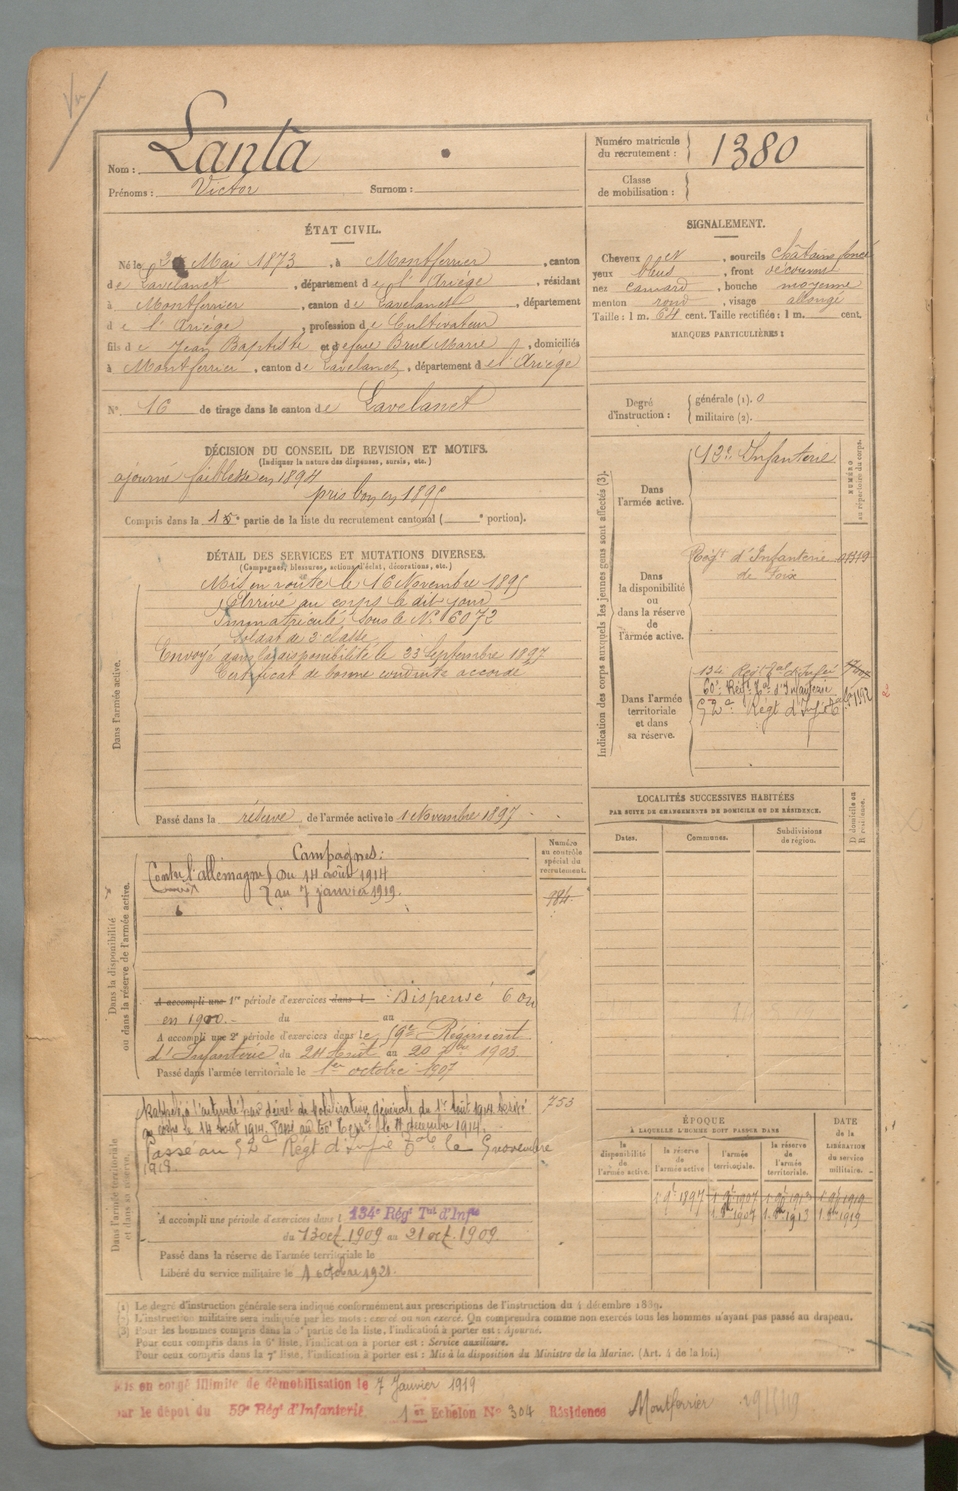 Nom : Lanta
Prénoms : Victor Surnom :
Numéro matricule du recrutement : 1380
Classe de mobilisation :
ÉTAT CIVIL.
Né le Mai 1873, à Montferrier, canton
de Lavelanet, département de l'Ariége, résidant
à Montferrier, canton de Lavelanet, département
de l'Ariége, profession de Cultivateur
fils de Jean Baptiste et de feue Marie, domiciliés
à Montferrier, canton de Lavelanet, département de l'Ariége
N° 16 de tirage dans le canton de Lavelanet
SIGNALEMENT.
Cheveux et, sourcils châtains foncé
yeux bleus, front découvert
nez camard, bouche moyenne
menton rond, visage allongé
Taille : 1 m. 64 cent. Taille rectifiée : 1 m. cent.
MARQUES PARTICULIÈRES :
Degré d'instruction : générale (1). 0
militaire (2).
DÉCISION DU CONSEIL DE REVISION ET MOTIFS.
(Indiquer la nature des dispenses, sursis, etc.)
ajourné faiblesse en 1894
pris bon en 1895
Compris dans la partie de la liste du recrutement cantonal ( e portion).
DÉTAIL DES SERVICES ET MUTATIONS DIVERSES.
(Campagnes, blessures, actions d'éclat, décorations, etc.)
Dans l'armée active.
Mis en route le 16 Novembre 1895
Arrivé au corps le dit jour
Immatriculé sous le N° 6072
Soldat de 2e classe
Envoyé dans la disponibilité le 23 Septembre 1897
Certificat de bonne conduite accordé
Passé dans la réserve de l'armée active le 1 Novembre 1897
Indication des corps auxquels les jeunes gens sont affectés (3).
NUMÉRO au répertoire du corps.
Dans l'armée active.
12e Infanterie
Dans la disponibilité ou dans la réserve de l'armée active.
Régt d'Infanterie
de Foix
Dans l'armée territoriale et dans sa réserve.
134 Régt tal d'Infie
60e Régt tal d'Infanterie
52e Régt d'Infie
LOCALITÉS SUCCESSIVES HABITÉES
PAR SUITE DE CHANGEMENTS DE DOMICILE OU DE RÉSIDENCE.
Dates. Communes. Subdivisions de région. D domicile ou R résidence.
Dans la disponibilité ou dans la réserve de l'armée active.
Numéro au contrôle spécial du recrutement.
984
Campagnes :
Contre l'allemagne du 14 août 1914
au 7 janvier 1919.
A accompli une 1re période d'exercices dans l Dispensé
en 1900. du au
A accompli une 2e période d'exercices dans le 59e Régiment
d'Infanterie du 24 Août au 20 7bre 1903.
Passé dans l'armée territoriale le 1er octobre 1907
Dans l'armée territoriale et dans sa réserve.
753
Rappelé à l'activité par décret de mobilisation générale du 1er août 1914. Arrivé
au corps le 14 août 1914. Passé au le 11 décembre 1914.
Passé au 52e Régt d'Infie le 5 novembre
1918.
A accompli une période d'exercices dans l 134e Régt Tal d'Infie
du 13 oct. 1909 au 21 oct. 1909
Passé dans la réserve de l'armée territoriale le
Libéré du service militaire le 1 octobre 1921
ÉPOQUE
À LAQUELLE L'HOMME DOIT PASSER DANS
la disponibilité de l'armée active. la réserve de l'armée active l'armée territoriale. la réserve de l'armée territoriale.
DATE de la LIBÉRATION du service militaire.
1 9bre 1897 1 9bre 1907 1 9bre 1913 1 9bre 1919
1907 1913 1919
(1) Le degré d'instruction générale sera indiqué conformément aux prescriptions de l'instruction du 4 décembre 1889.
(2) L'instruction militaire sera indiquée par les mots : exercé ou non exercé. On comprendra comme non exercés tous les hommes n'ayant pas passé au drapeau.
(3) Pour les hommes compris dans la 5e partie de la liste, l'indication à porter est : Ajourné.
Pour ceux compris dans la 6e liste, l'indication à porter est : Service auxiliaire.
Pour ceux compris dans la 7e liste, l'indication à porter est : Mis à la disposition du Ministre de la Marine. (Art. 4 de la loi.)
Mis en congé illimité de démobilisation le 7 Janvier 1919
par le dépot du 59e Régt d'Infanterie 1er Echelon No 304 Résidence Montferrier